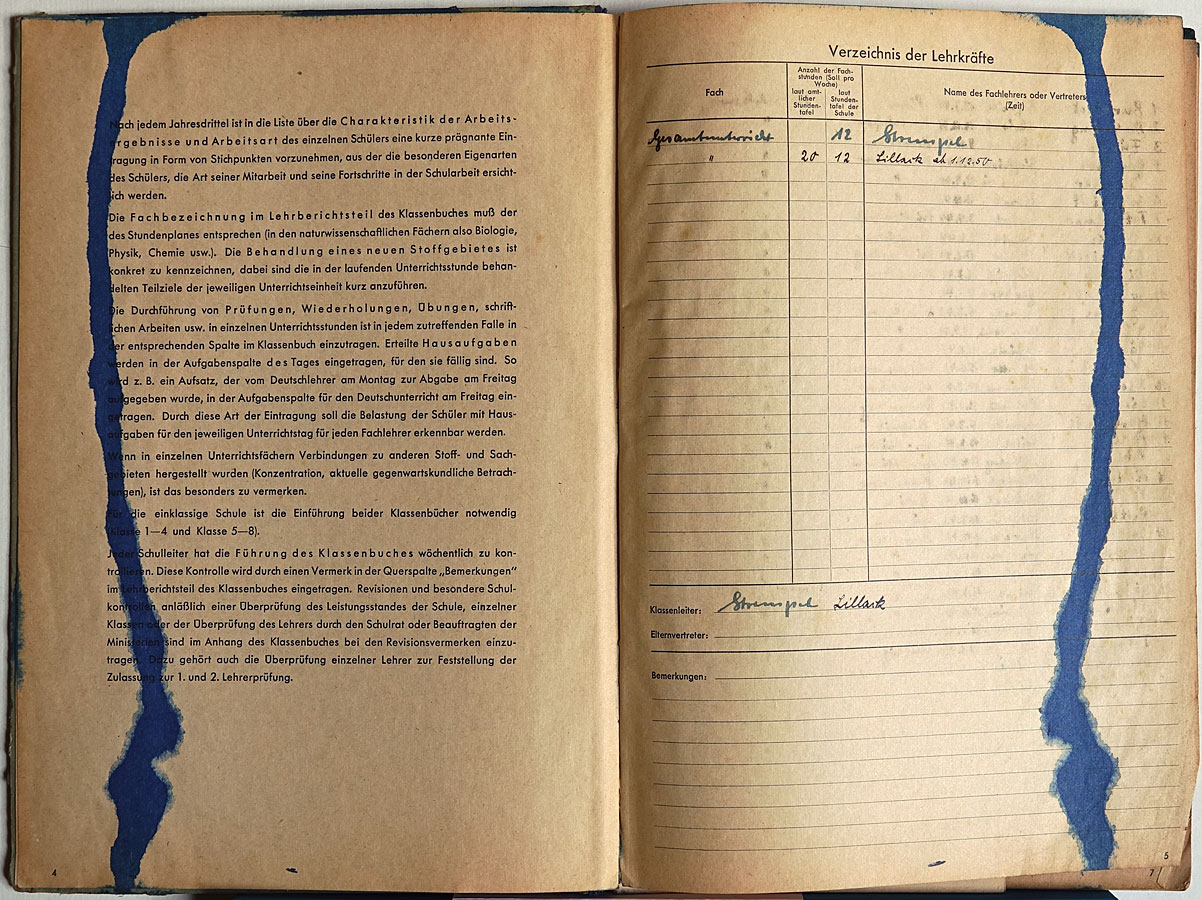 Nach jedem Jahresdrittel ist in die Liste über die Charakteristik der Arbeits-
ergebnisse und Arbeitsart des einzelnen Schülers eine kurze prägnante Ein-
tragung in Form von Stichpunkten vorzunehmen, aus der die besonderen Eigenarten
des Schülers, die Art seiner Mitarbeit und seine Fortschritte in der Schularbeit ersicht-
lich werden.
Die Fachbezeichnung im Lehrberichtsteil des Klassenbuches muß der
des Stundenplanes entsprechen (in den naturwissenschaftlichen Fächern also Biologie,
Physik, Chemie usw.). Die Behandlung eines neuen Stoffgebietes ist
konkret zu kennzeichnen, dabei sind die in der laufenden Unterrichtsstunde behan-
delten Teilziele der jeweiligen Unterrichtseinheit kurz anzuführen.
Die Durchführung von Prüfungen, Wiederholungen, Übungen, schrift-
lichen Arbeiten usw. in einzelnen Unterrichtsstunden ist in jedem zutreffenden Falle in
der entsprechenden Spalte im Klassenbuch einzutragen. Erteilte Hausaufgaben
werden in der Aufgabenspalte des Tages eingetragen, für den sie fällig sind. So
wird z. B. ein Aufsatz, der vom Deutschlehrer am Montag zur Abgabe am Freitag
aufgegeben wurde, in der Aufgabenspalte für den Deutschunterricht am Freitag ein-
getragen. Durch diese Art der Eintragung soll die Belastung der Schüler mit Haus-
aufgaben für den jeweiligen Unterrichtstag für jeden Fachlehrer erkennbar werden.
Wenn in einzelnen Unterrichtsfächern Verbindungen zu anderen Stoff- und Sach-
gebieten hergestellt wurden (Konzentration, aktuelle gegenwartskundliche Betrach-
tungen), ist das besonders zu vermerken.
Für die einklassige Schule ist die Einführung beider Klassenbücher notwendig
(Klasse 1—4 und Klasse 5—8).
Jeder Schulleiter hat die Führung des Klassenbuches wöchentlich zu kon-
trollieren. Diese Kontrolle wird durch einen Vermerk in der Querspalte „Bemerkungen"
im Lehrberichtsteil des Klassenbuches eingetragen. Revisionen und besondere Schul-
kontrollen anläßlich einer Überprüfung des Leistungsstandes der Schule, einzelner
Klassen oder der Überprüfung des Lehrers durch den Schulrat oder Beauftragten der
Ministerien sind im Anhang des Klassenbuches bei den Revisionsvermerken einzu-
tragen. Dazu gehört auch die Überprüfung einzelner Lehrer zur Feststellung der
Zulassung zur 1. und 2. Lehrerprüfung.
4
Verzeichnis der Lehrkräfte
Fach
Anzahl der Fach-
stunden (Soll pro
Woche)
laut amt-
licher
Stunden-
tafel
laut
Stunden-
tafel der
Schule
Name des Fachlehrers oder Vertreters
(Zeit)
Gesamtunterricht 12 Strempel
" 20 12 Lillack ab 1.12.50
Klassenleiter: Strempel Lillack
Elternvertreter:
Bemerkungen:
5
7